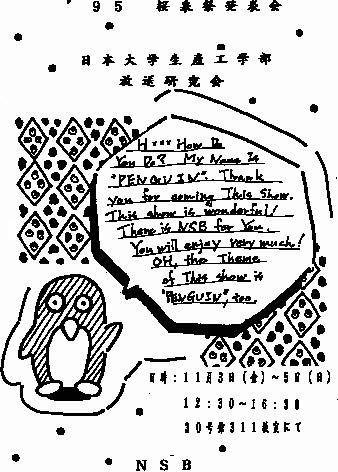 ９５　桜泉祭発表会
日本大学生産工学部
放送研究会
H*** How Do
You Do? My Name Is
"PENGUIN". Thank
you for coming This Show.
This show is wonderful!
There is NSB for You.
You will enjoy very much!
OH, the Theme
of This show is
"PENGUIN", too.
日時：１１月３日（金）～５日（日）
１２：３０～１６：３０
３０号館３１１教室にて
ＮＳＢ